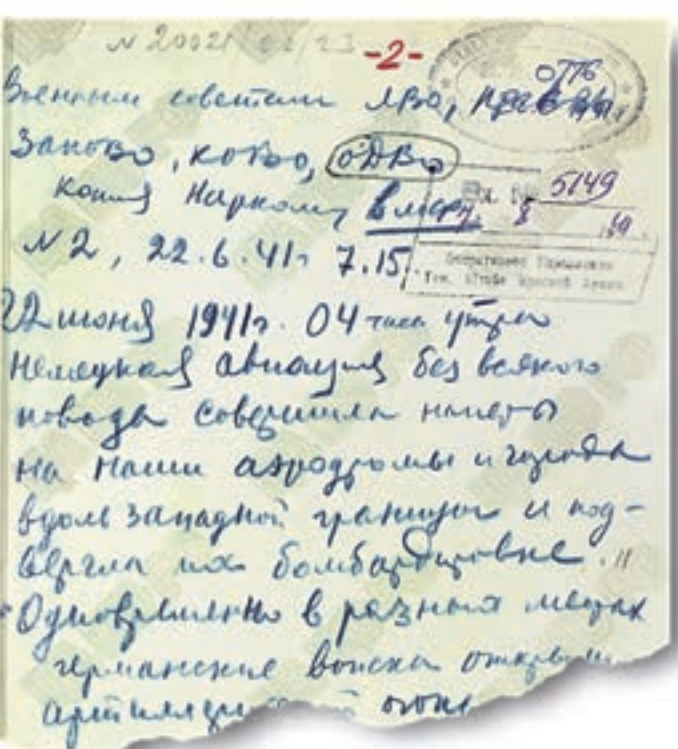 N 20021
-2-
ОТПБ
Военным советам ЛВО, ПрибОВО,
ЗапОВО, КОВО, ОДВО
копия Наркому ВМФ
5149
8
N2, 22.6.41г 7.15.
Оперативное Управление
Ген. Штаба Красной Армии
22 июня 1941г. 04 часа утра
немецкая авиация без всякого
повода совершила налеты
на наши аэродромы и города
вдоль западной границы и под-
вергла их бомбардировке. "
Одновременно в разных местах
германские войска открыли
артиллерийский огонь